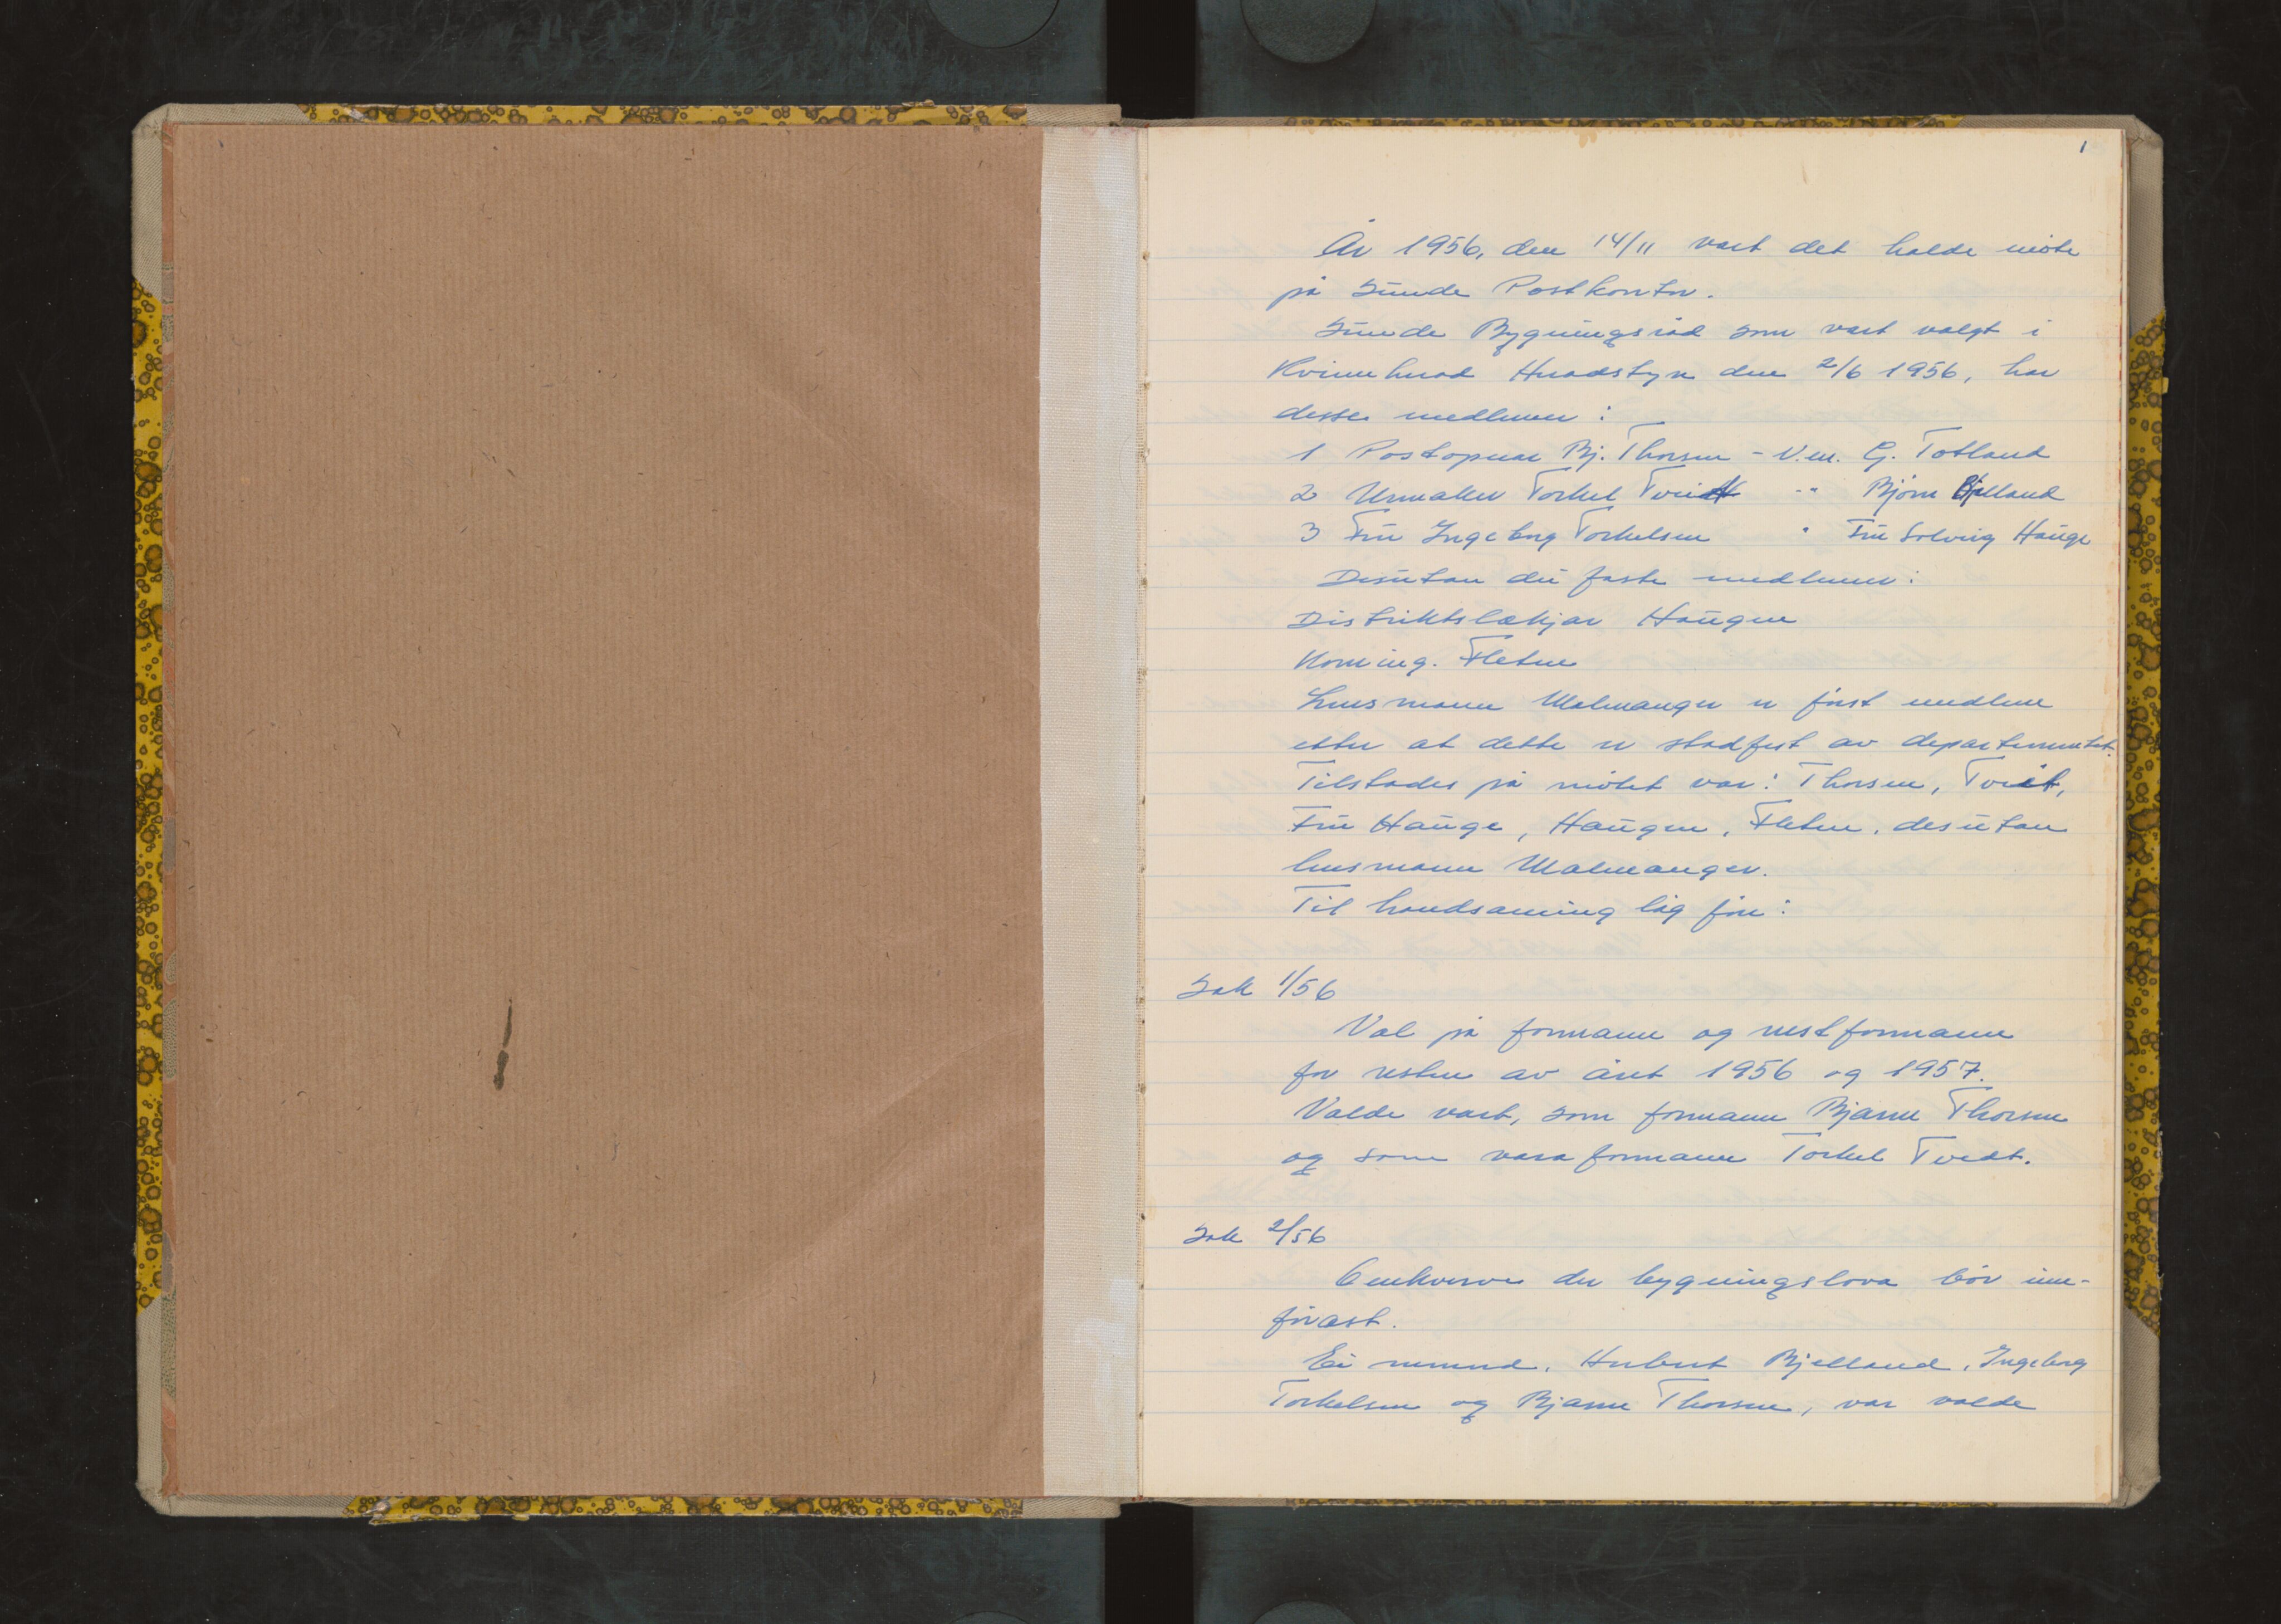 1
År 1956, den 14/11 vart det halde møte
på Sunde Postkontor.
Sunde Bygningsråd som vart valgt i
Kvinnherad Heradstyre den 2/6 1956, har
desse medlemer:
1 Postopnar Bj. Thorsen - V.m. G. Totland
2 Urmaker Torkel Tveit -"- Bjørn Bjelland
3 Fru Ingeborg Torkelsen " Fru Solveig Hauge
Desutan dei faste medlemer:
Distriktslækjar Haugen
Koming. Fleten
Lensmann Malmanger er først medlem
etter at dette er stadfest av departementet.
Tilstades på møtet var: Thorsen, Tveit,
Fru Hauge, Haugen, Fleten, desutan
lensmann Malmanger.
Til handsaming låg føre:
Sak 1/56
Val på formann og nestformann
for resten av året 1956 og 1957.
Valde vart, som formann Bjarne Thorsen
og som varaformann Torkel Tveit.
Sak 2/56
Omkverve der bygningslova bør inn-
førast.
Ei nemnd, Hubert Bjelland, Ingeborg
Torkelsen og Bjarne Thorsen, var valde